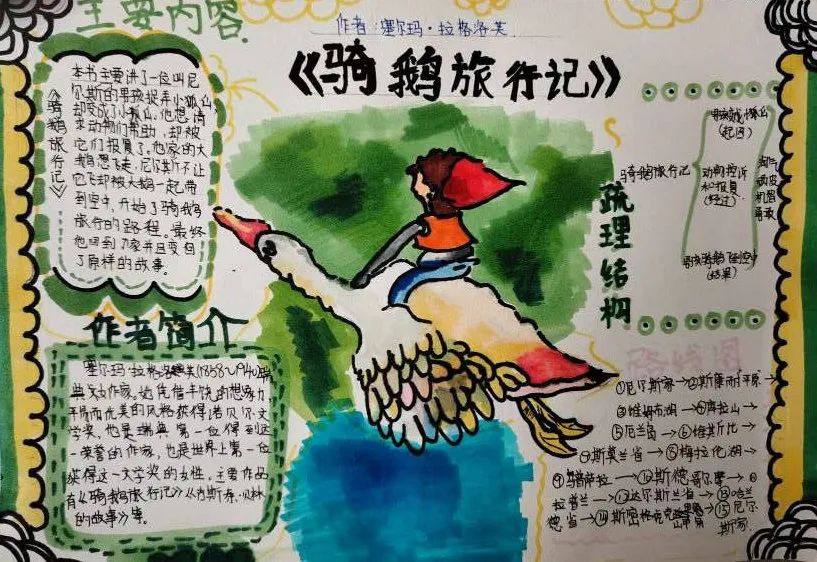 主要内容
作者:塞尔玛·拉格洛芙
《骑鹅旅行记》
《骑鹅旅行记》
本书主要讲了一位叫尼
尔斯的男孩捉弄小狐仙
却变成了小狐仙,他想请
求动物们帮助,却被
它们报复了,他家的大
鹅想飞走,尼尔斯不让
它飞却被大鹅一起带
到空中,开始了骑鹅
旅行的路程,最终
他回到了家并且变回
了原样的故事。
作者简介
塞尔玛·拉格洛芙(1858~1940)瑞
典女作家。她凭借丰饶的想象力
平易而优美的风格获得诺贝尔文
学奖,也是瑞典第一位得到这
一荣誉的作家,也是世界上第一位
获得这一大学奖的女性。主要作品
有《骑鹅旅行记》
的故事》等。
疏理结构
骑鹅旅行记
(起因)
动物控诉
和报复
(经过)
(结果)
淘气
顽皮
机智
勇敢
路线图
①尼尔斯家→②斯康耐平原→
③维姆布湖→④
⑤厄兰岛→⑥
⑦斯莫兰省→⑧梅拉伦湖→
⑨乌普萨拉→⑩斯德哥尔摩→⑪
拉普兰→⑫达尔斯兰省→⑬哈兰
德省→⑭斯密格霍克→⑮尼尔
斯家.